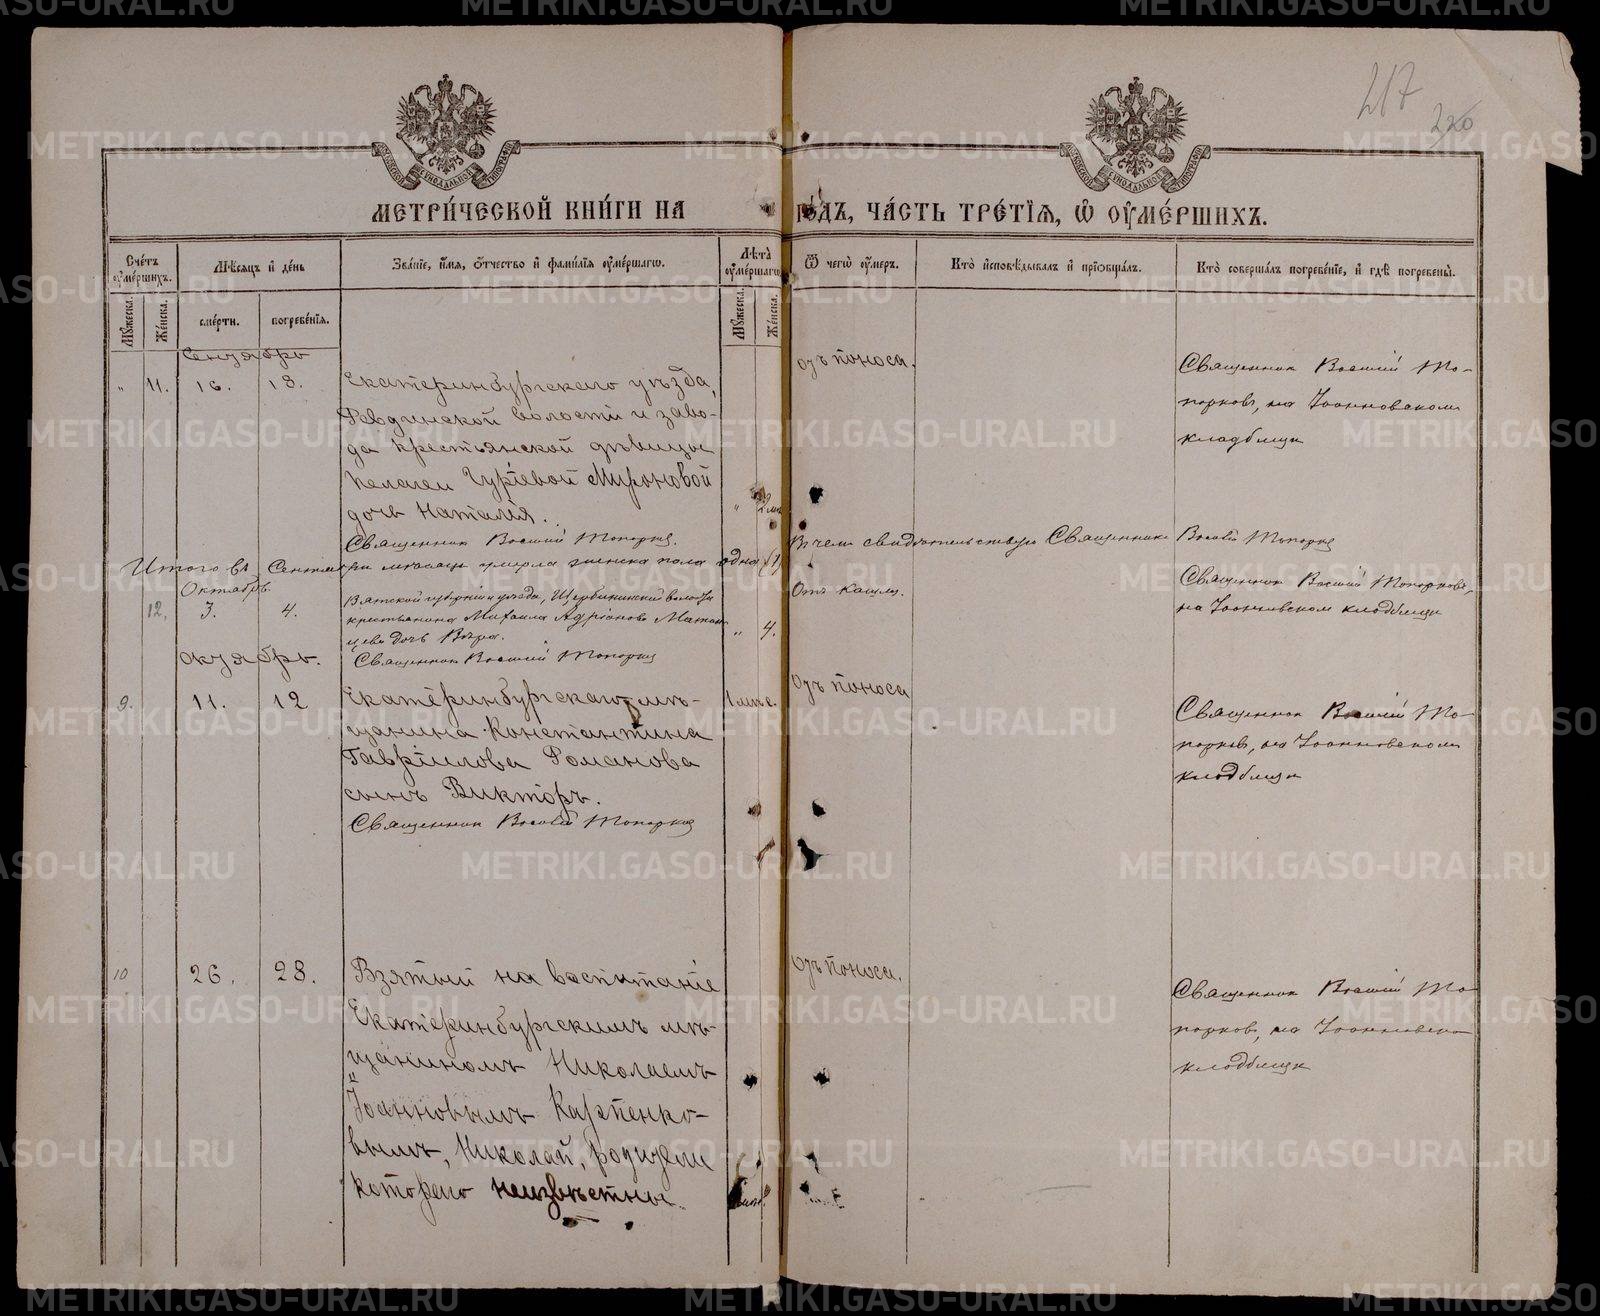 217
220
МЕТРИ́ЧЕСКОЙ КНИ́ГИ НА ГО́ДЪ, ЧА́СТЬ ТРЕ́ТІѦ, Ѿ ОУМЕ́РШИХЪ.
Сче́тъ оуме́ршихъ.
Мѣсяцъ и де́нь
Зва́ніе, и́мя, о́тчество и фами́лія оуме́ршагѡ.
Лѣта̀ оуме́ршагѡ
Ѿ чегѡ̀ оу́меръ.
Кто̀ исповѣ́дывалъ и пріобща́лъ.
Кто̀ соверша́лъ погребе́ніе, и гдѣ̀ погребены̀.
Мꙋжеска.
Же́нска.
сме́рти.
погребе́нія.
Мꙋжеска.
Же́нска.
Сентябрь
" 11. 16. 18.
Екатеринбургскаго уѣзда,
Ревдинской волости и заво-
да крестьянской дѣвицы
Пелагеи Гуріевой Мироновой
дочь Наталія.
Священник Василий Топорков
отъ поноса.
Священник Василий То-
порковъ, на Іоанновском
кладбищѣ
Итого въ Сентябри месяце умерла женска пола одна (1)
В чем свидѣтельствую Священник Василий Топорков
Октябрь
12. 3. 4.
Вятской губерніи и уѣзда, Щербининской волости
крестьянина Михаила Адріанова
дочь Вѣра.
Священник Василий Топорков
" 4.
Отъ кашля.
Священник Василий Топорковъ,
на Іоанновском кладбищѣ
октябрь.
9. 11. 12
Екатеринбургскаго мѣ-
щанина Константина
Гавріилова Романова
сынъ Викторъ.
Священник Василий Топорков
1 мѣс.
отъ поноса
Священник Василий То-
порков, на Іоанновском
кладбищѣ
10 26. 28.
Взятый на воспитаніе
Екатеринбургскимъ мѣ-
щаниномъ Николаемъ
Іоанновымъ Карпенко-
вымъ, Николай, родители
котораго неизвѣстны.
отъ поноса.
Священник Василий То-
порков, на Іоанновско
кладбищѣ
METRIKI.GASO-URAL.RU